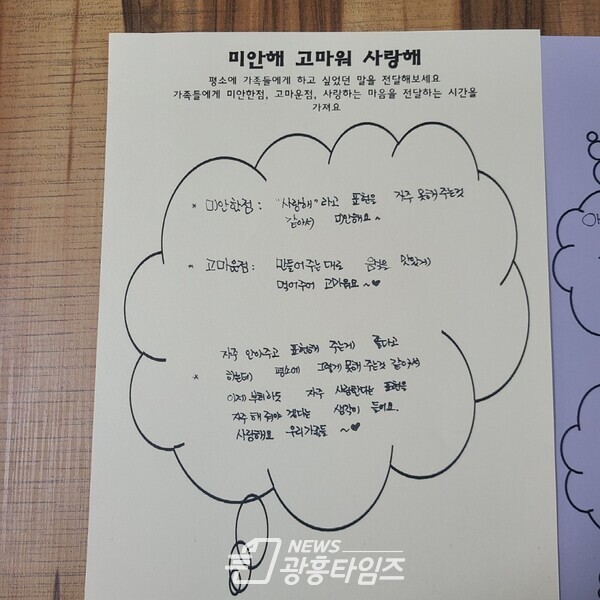 미안해 고마워 사랑해
평소에 가족들에게 하고 싶었던 말을 전달해보세요
가족들에게 미안한점, 고마운점, 사랑하는 마음을 전달하는 시간을
가져요
* 미안한점 : "사랑해"라고 표현을 자주 못해 주는것
같아서 미안해요~
* 고마운점 : 만들어 주는 대로 음식을 맛있게
먹어주어 고마워요~♥
자주 안아주고 표현해 주는게 좋다고
하는데 평소에 그렇게 못해 주는것 같아서
* 이제부터라도 자주 사랑한다는 표현을
자주 해 줘야 겠다는 생각이 들어요.
사랑해요 우리가족들 ~♥
NEWS
광흥타임즈